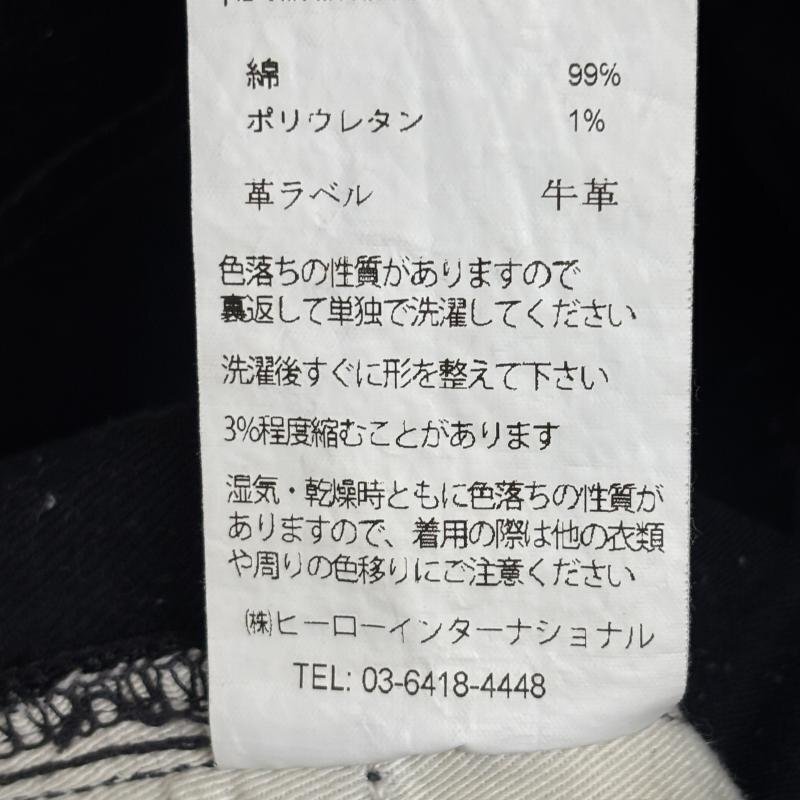 綿 99%
ポリウレタン 1%
革ラベル 牛革
色落ちの性質がありますので
裏返して単独で洗濯してください
洗濯後すぐに形を整えて下さい
3%程度縮むことがあります
湿気・乾燥時ともに色落ちの性質が
ありますので、着用の際は他の衣類
や周りの色移りにご注意ください
㈱ヒーローインターナショナル
TEL: 03-6418-4448